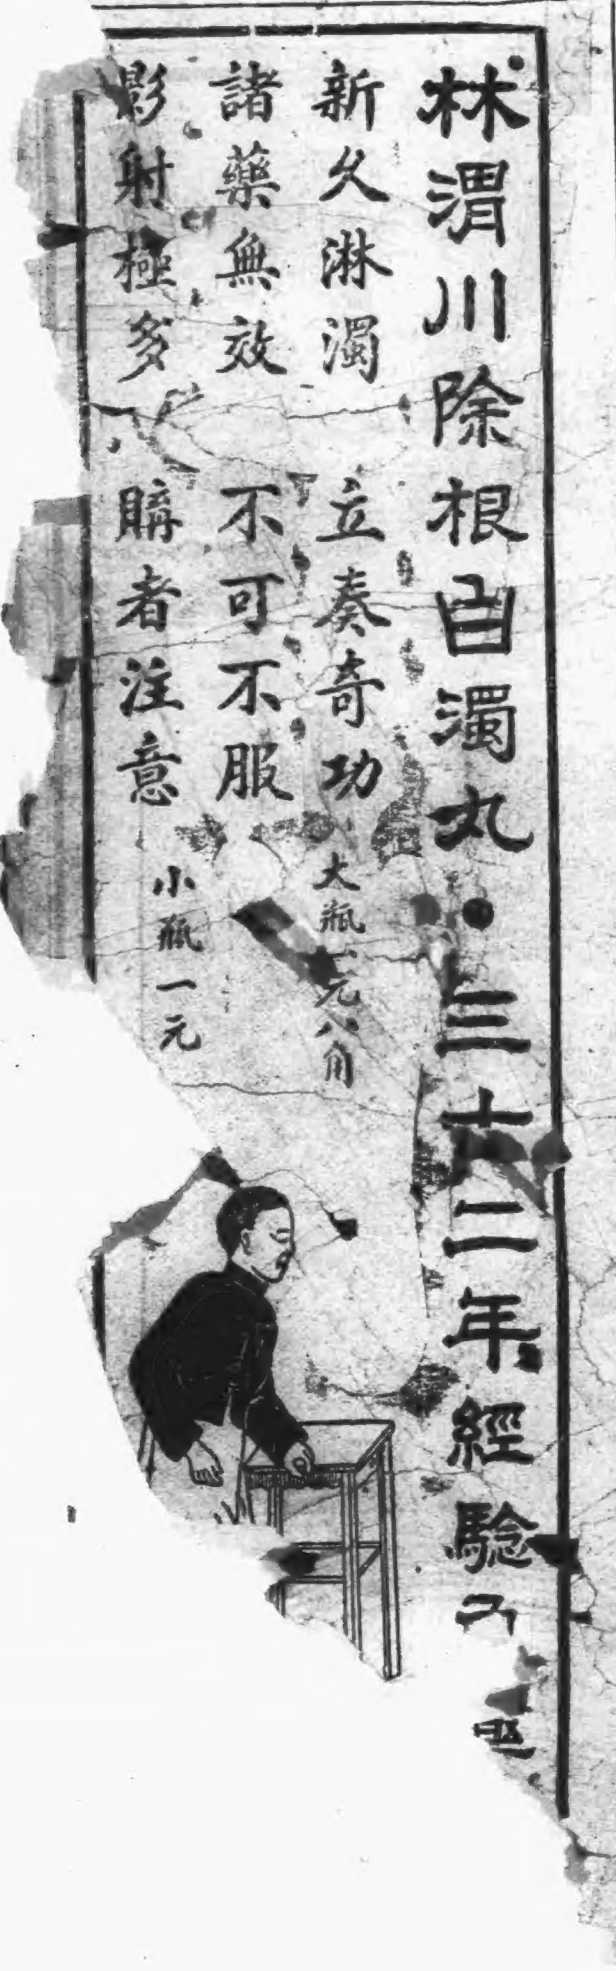 林渭川除根白濁丸●三十二年經驗
新久淋濁 立奏奇功 大瓶一元八角
諸藥無效 不可不服
影射極多 購者注意 小瓶一元